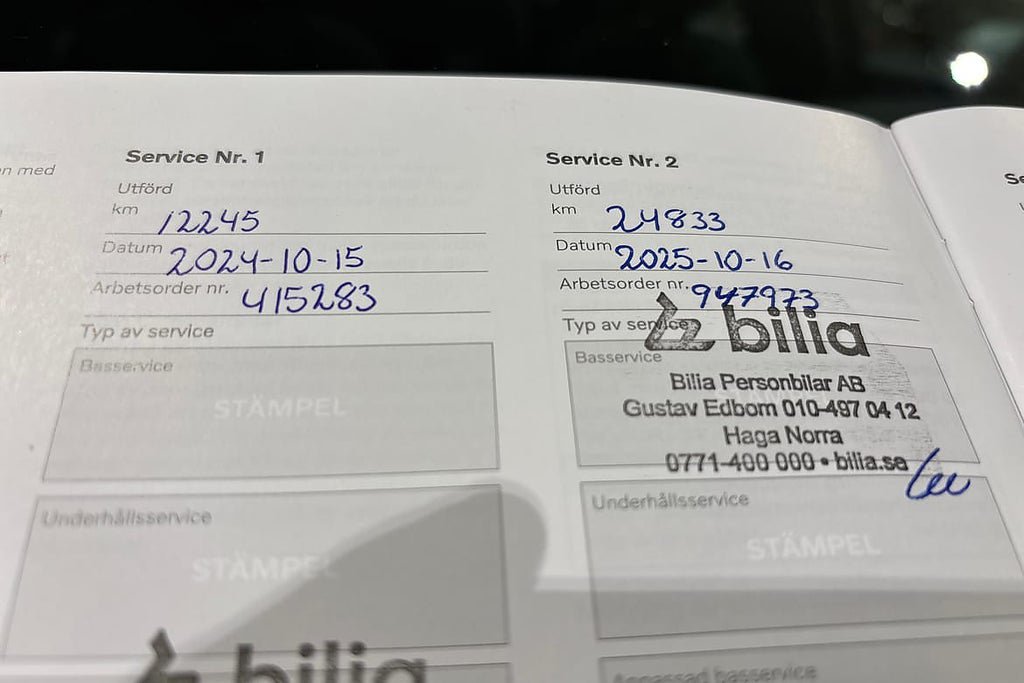 en med
Service Nr. 1
Utförd
km 12245
Datum 2024-10-15
Arbetsorder nr. 415283
Typ av service
Basservice
STÄMPEL
Underhållsservice
STÄMPEL
bilia
Service Nr. 2
Utförd
km 24833
Datum 2025-10-16
Arbetsorder nr. 947973
Typ av service
bilia
Basservice
Bilia Personbilar AB
Gustav Edbom 010-497 04 12
Haga Norra
0771-400 000 • bilia.se
Underhållsservice
STÄMPEL
Anpassad basservice